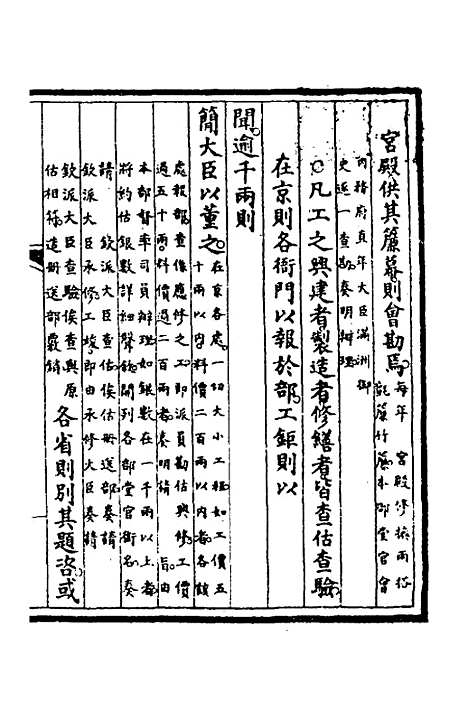 宮殿供其簾幕則會勘焉每年 宮殿修換雨搭
氊簾竹簾本部堂官會
內務府直年大臣滿洲御
史逐一查勘奏明辦理
○凡工之興建者製造者修繕者皆查估查驗
在京則各衙門以報於部工鉅則以
聞逾千兩則
簡大臣以董之在京各處一切大小工程如工價五
十兩以內料價二百兩以內者各該
處報部查係應修之工即派員勘估興修工價
過五十兩料價過二百兩者奏明請 旨由
本部督率司員辦理如銀數在一千兩以上者
將約估銀數詳細聲敘開列各部堂官銜名奏
請 欽派大臣查估俟估冊送部奏請
欽派大臣承修工竣即由承修大臣奏請
欽派大臣查驗俟查驗與原
估相符造冊送部覈銷各省則別其題咨或